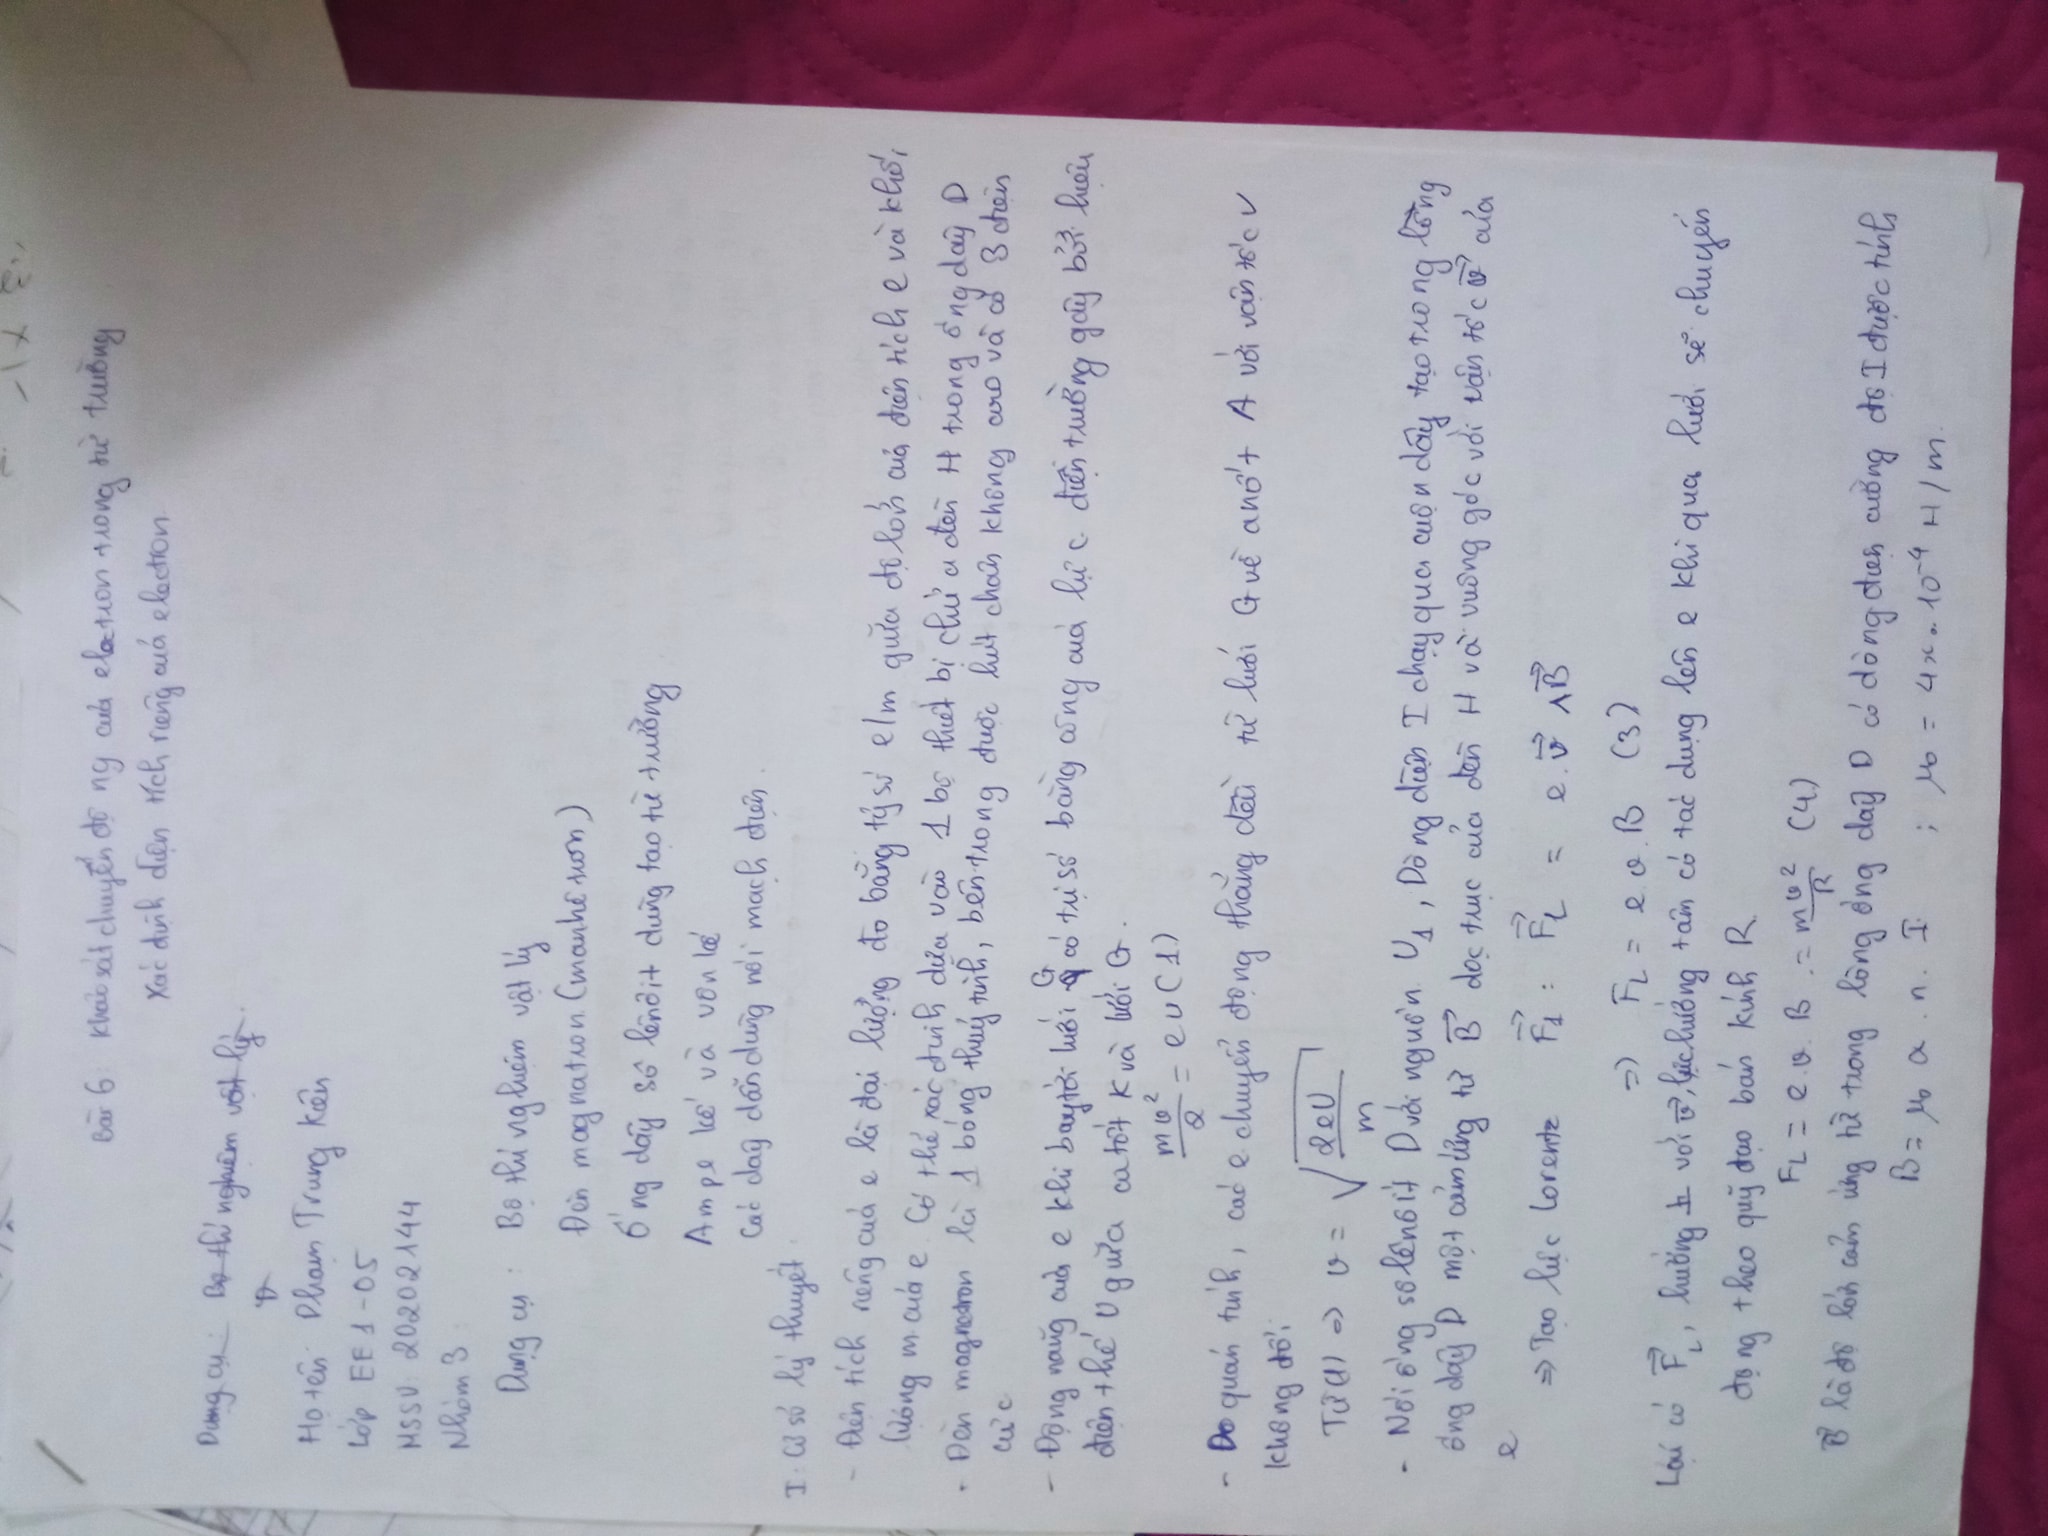 Bài 6: Khảo sát chuyển động của electron trong từ trường
Xác định điện tích riêng của electron
Dụng cụ: Bộ thí nghiệm vật lý.
Họ tên: Phạm Trung Kiên
Lớp EE1-05
MSSV: 20202144
Nhóm 3:
Dụng cụ: Bộ thí nghiệm vật lý
Đèn magnatron (manhêtron)
Ống dây sôlênôit dùng tạo từ trường
Ampe kế và vôn kế
Các dây dẫn dùng nối mạch điện.
I. Cơ sở lý thuyết.
- Điện tích riêng của e là đại lượng đo bằng tỷ số e/m giữa độ lớn của điện tích e và khối
lượng m của e. Có thể xác định dựa vào 1 bộ thiết bị chứa đèn H trong ống dây D
- Đèn magnetron là 1 bóng thuỷ tinh, bên trong được hút chân không cao và có 3 điện
cực
- Động năng của e khi bay tới lưới G có trị số bằng công của lực điện trường gây bởi hiệu
điện thế U giữa catôt K và lưới G.
mv²/2 = eU (1)
- Do quán tính, các e chuyển động thẳng đều từ lưới G về anôt A với vận tốc v
không đổi:
Từ (1) => v = √(2eU/m)
- Nối ống sôlênôit D với nguồn U₁, Dòng điện I chạy qua cuộn dây tạo trong lòng
ống dây D một cảm ứng từ B⃗ dọc trục của đèn H và vuông góc với vận tốc v⃗ của
e
=> Tạo lực Lorentz F⃗₁: F⃗_L = e.v⃗ ∧ B⃗
=> F_L = e.v.B (3)
Lại có F⃗_L, hướng ⊥ với v⃗, lực hướng tâm có tác dụng lên e khi qua lưới sẽ chuyển
động theo quỹ đạo bán kính R
F_L = e.v.B. = mv²/R (4)
B⃗ là độ lớn cảm ứng từ trong lòng ống dây D có dòng điện cường độ I được tính
B = μ₀ α.n.I ; μ₀ = 4π.10⁻⁴ H/m.